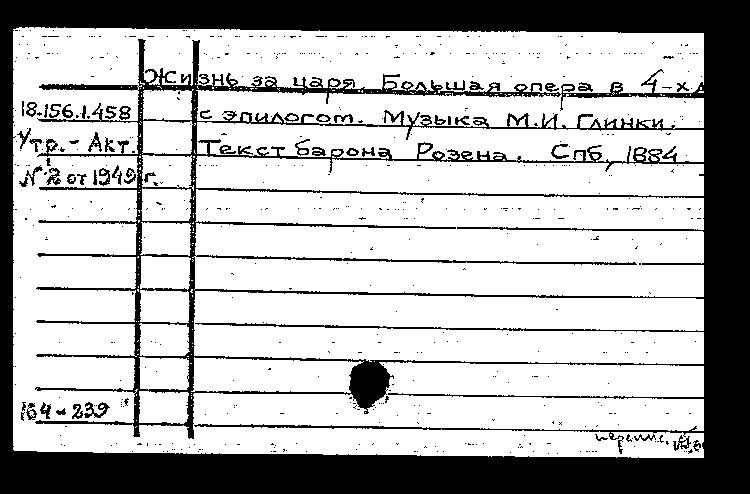 Жизнь за царя. Большая опера в 4-х д
18.156.1.458
с эпилогом. Музыка М.И. Глинки.
Утр. - Акт.
Текст барона Розена. Спб., 1884.
№ 2 от 1949 г.
164-239
перепис.